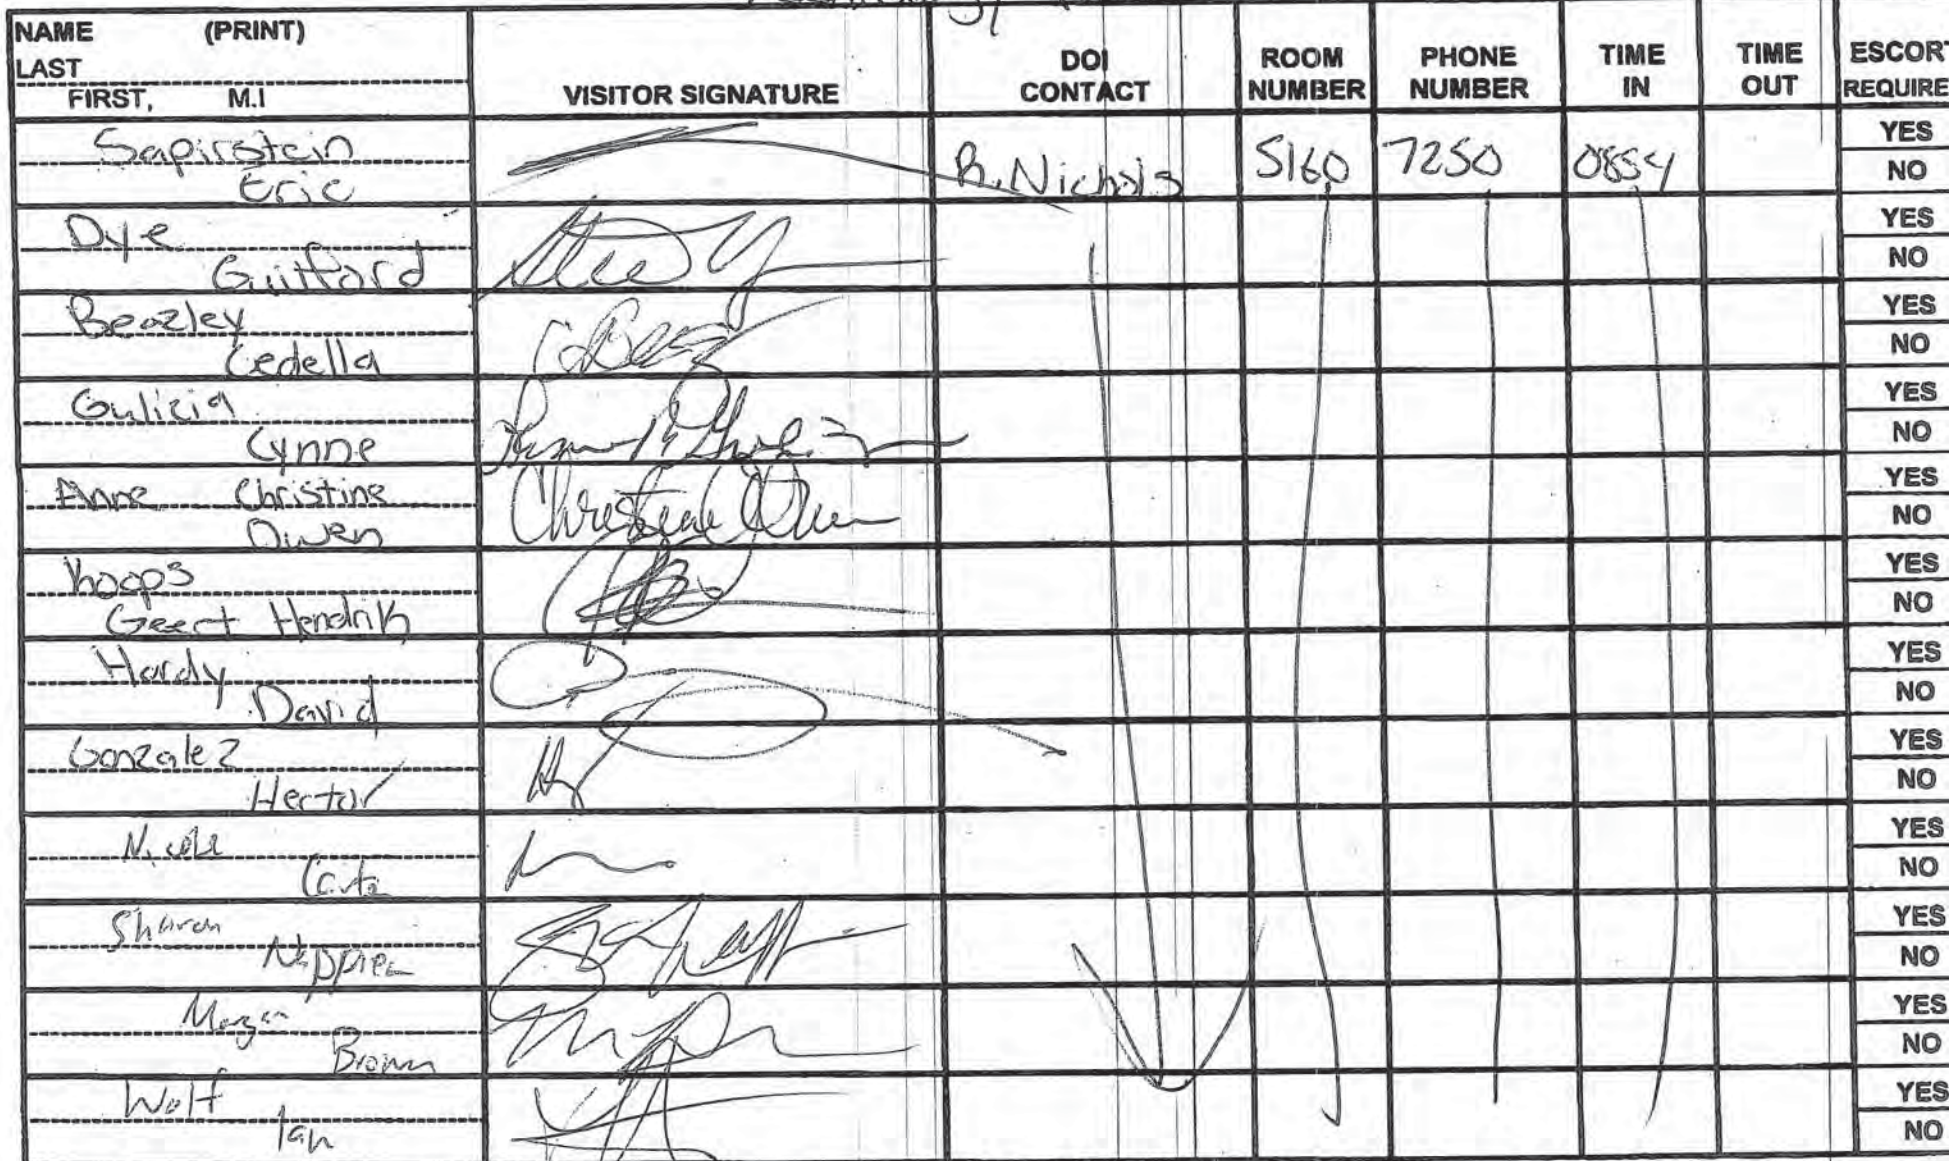 NAME (PRINT)
LAST
FIRST, M.I
VISITOR SIGNATURE
DOI CONTACT
ROOM NUMBER
PHONE NUMBER
TIME IN
TIME OUT
ESCORT REQUIRE
Sapirstein
Eric
R. Nichols
5160
7250
0854
YES
NO
Dye
Guitford
YES
NO
Beazley
Cedella
YES
NO
Gulizia
Lynne
YES
NO
Anne Christine
Owen
Christine Owen
YES
NO
Koops
Geert Hendrik
YES
NO
Hardy
David
YES
NO
Gonzalez
Hector
YES
NO
Nicole
YES
NO
Sharon
Nappier
YES
NO
Morgan
Brown
YES
NO
Wolf
Ian
YES
NO